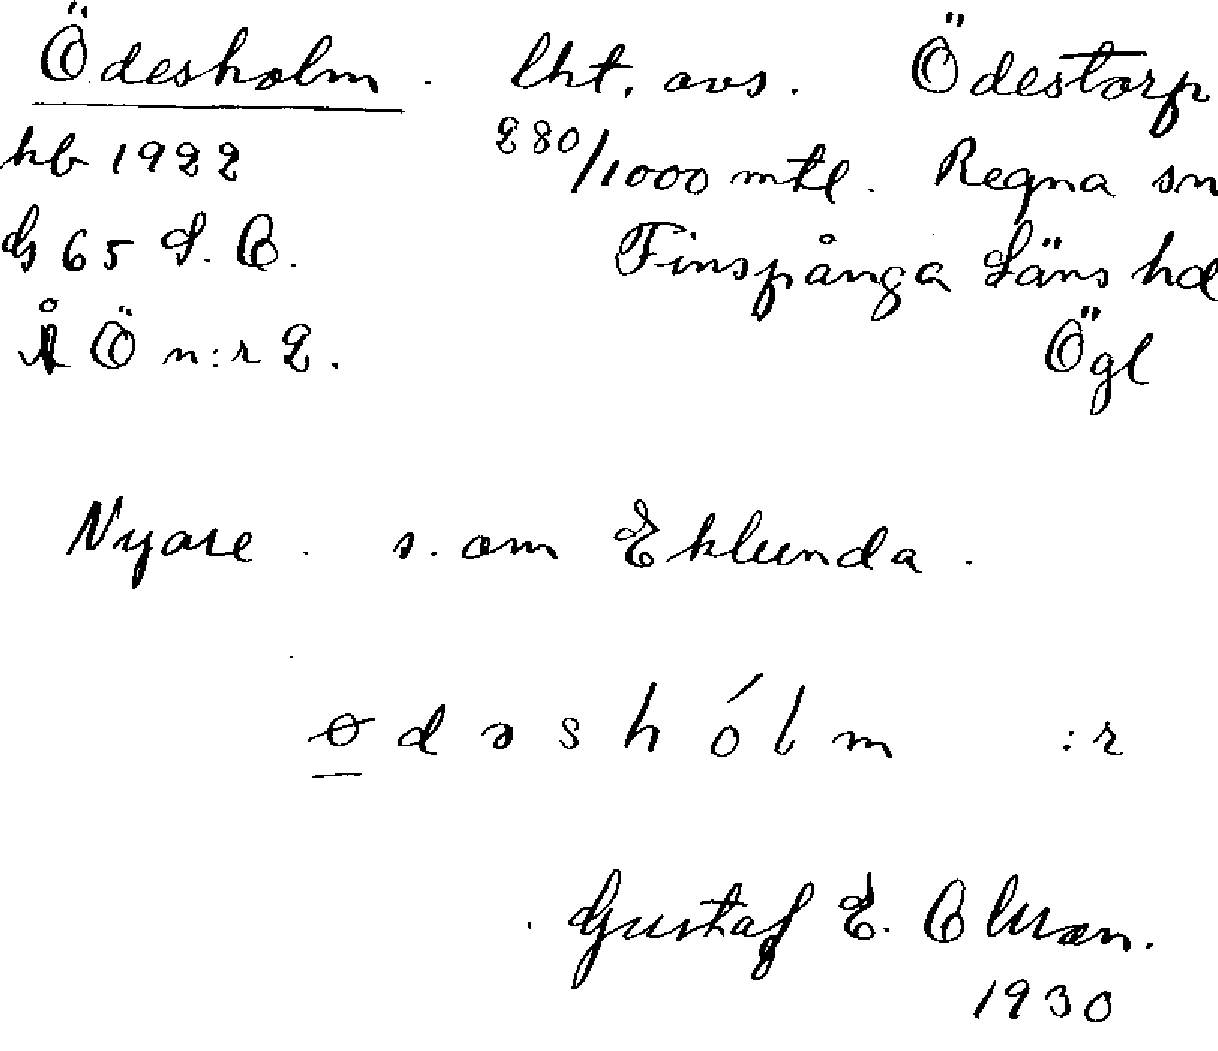 Ödesholm. lht. avs. Ödestorp
hb 1922 280/1000 mtl. Regna sn
G 65 S. B. Finspånga Läns hd
Å Ö n:r 2. Ögl
Nyare. s. om Eklunda.
ɵ d ə s h ó l m :r
Gustaf E. Olsson.
1930